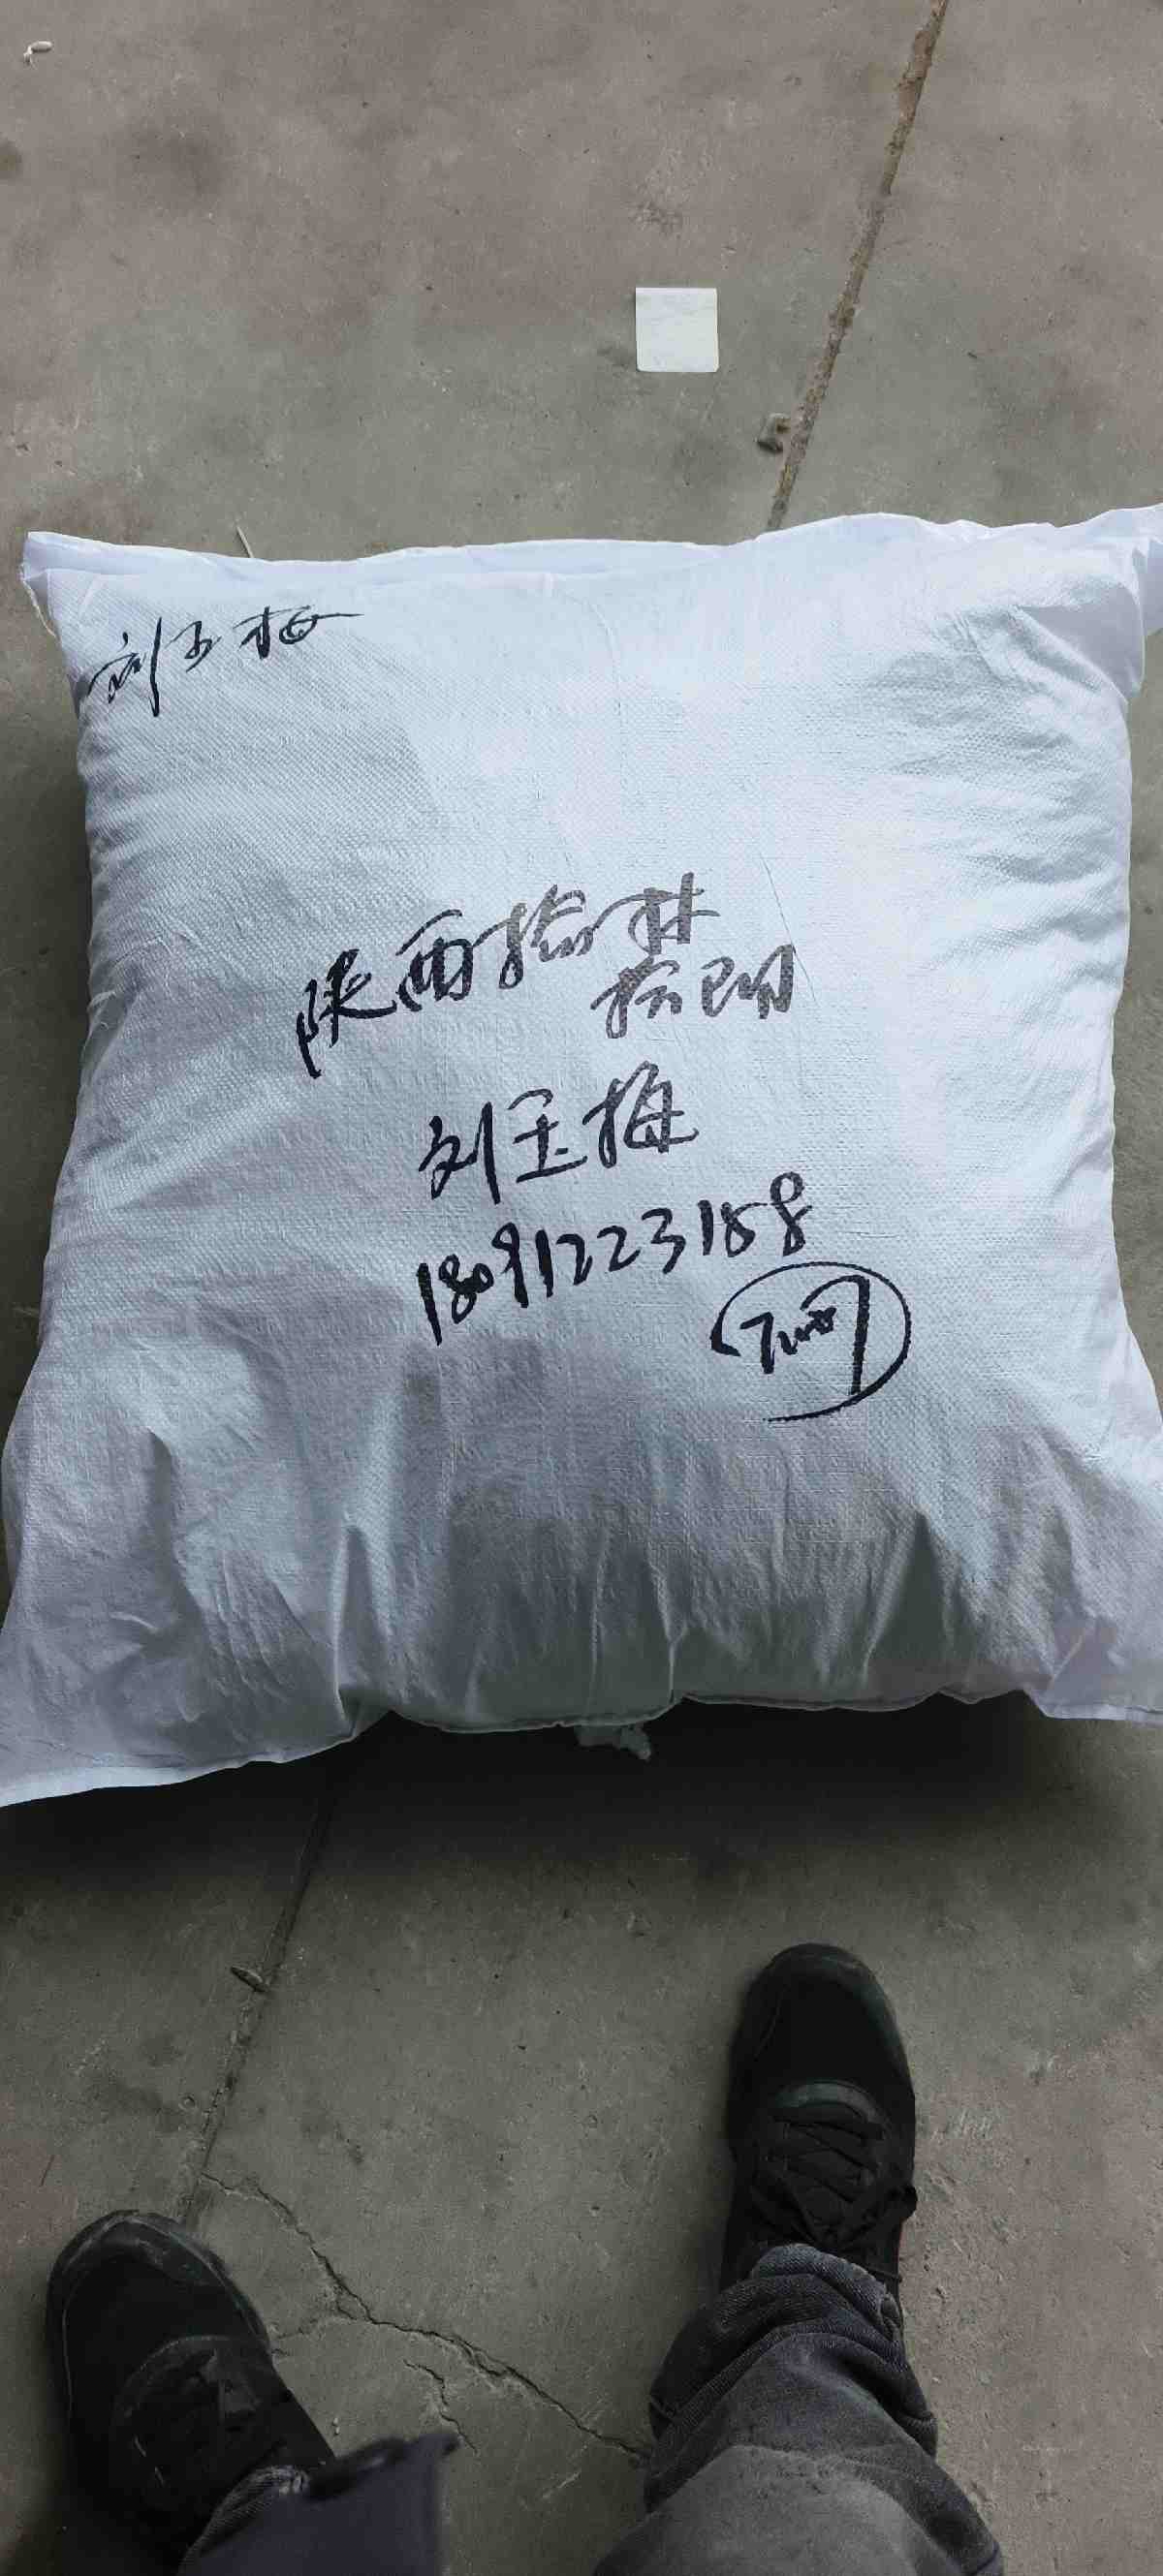 刘玉梅
陕西榆林
榆阳
刘玉梅
18091223188